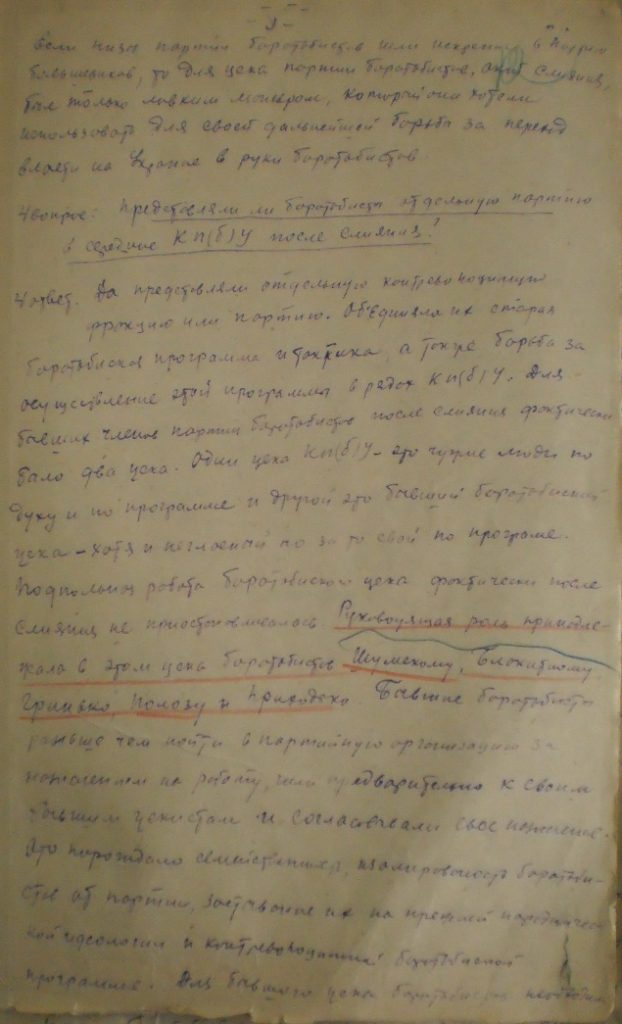 - 3 -
Если низы партии боротьбистов шли искренно в партию
большевиков, то для цека партии боротьбистов, акт слияния,
был только ловким маневром, который они хотели
использовать для своей дальнейшей борьбы за переход
власти на Украине в руки боротьбистов.
4 вопрос: Представляли ли боротьбисты отдельную партию
в середине КП(б)У после слияния?
4 ответ. Да представляли отдельную контревоюционную
фракцию или партию. Объединяла их старая
боротьбиская программа и тактика, а также борьба за
осуществление этой программы в рядах КП(б)У. Для
бывших членов партии боротьбистов после слияния фактически
было два цека. Один цека КП(б)У - это чужие люди по
духу и по программе и другой это бывший боротьбиский
цека - хотя и негласный но за то свой по програме.
Подпольная работа боротьбиского цека фактически после
слияния не приостанавливалась. Руководящая роль принадле-
жала в этом цека боротьбистов Шумскому, Блакитному
Гринько, Полозу и Приходько. Бывшие боротьбисты
раньше чем пойти в партийную организацию за
назначением на работу, шли предварительно к своим
бывшим цекистам и согласовывали свое назначение.
Это порождало семейственность, изолированость боротьби-
стов от партии, застывание их на прежней народничес-
кой идеологии и контревоюционной боротьбиской
программе. Для бывшего цека боротьбистов